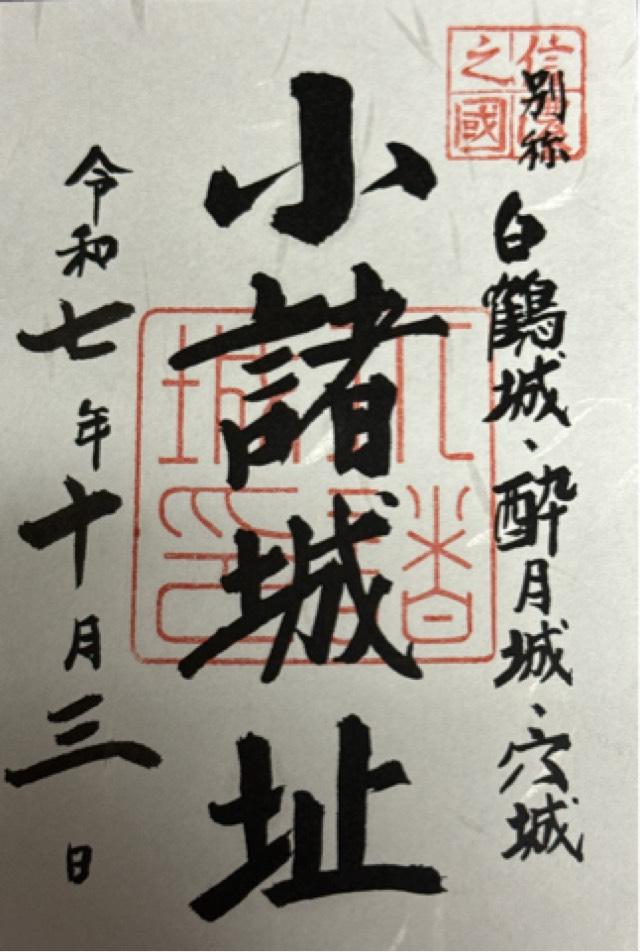 信濃之國
別称 白鶴城、酔月城、穴城
小諸城址
令和七年十月三日